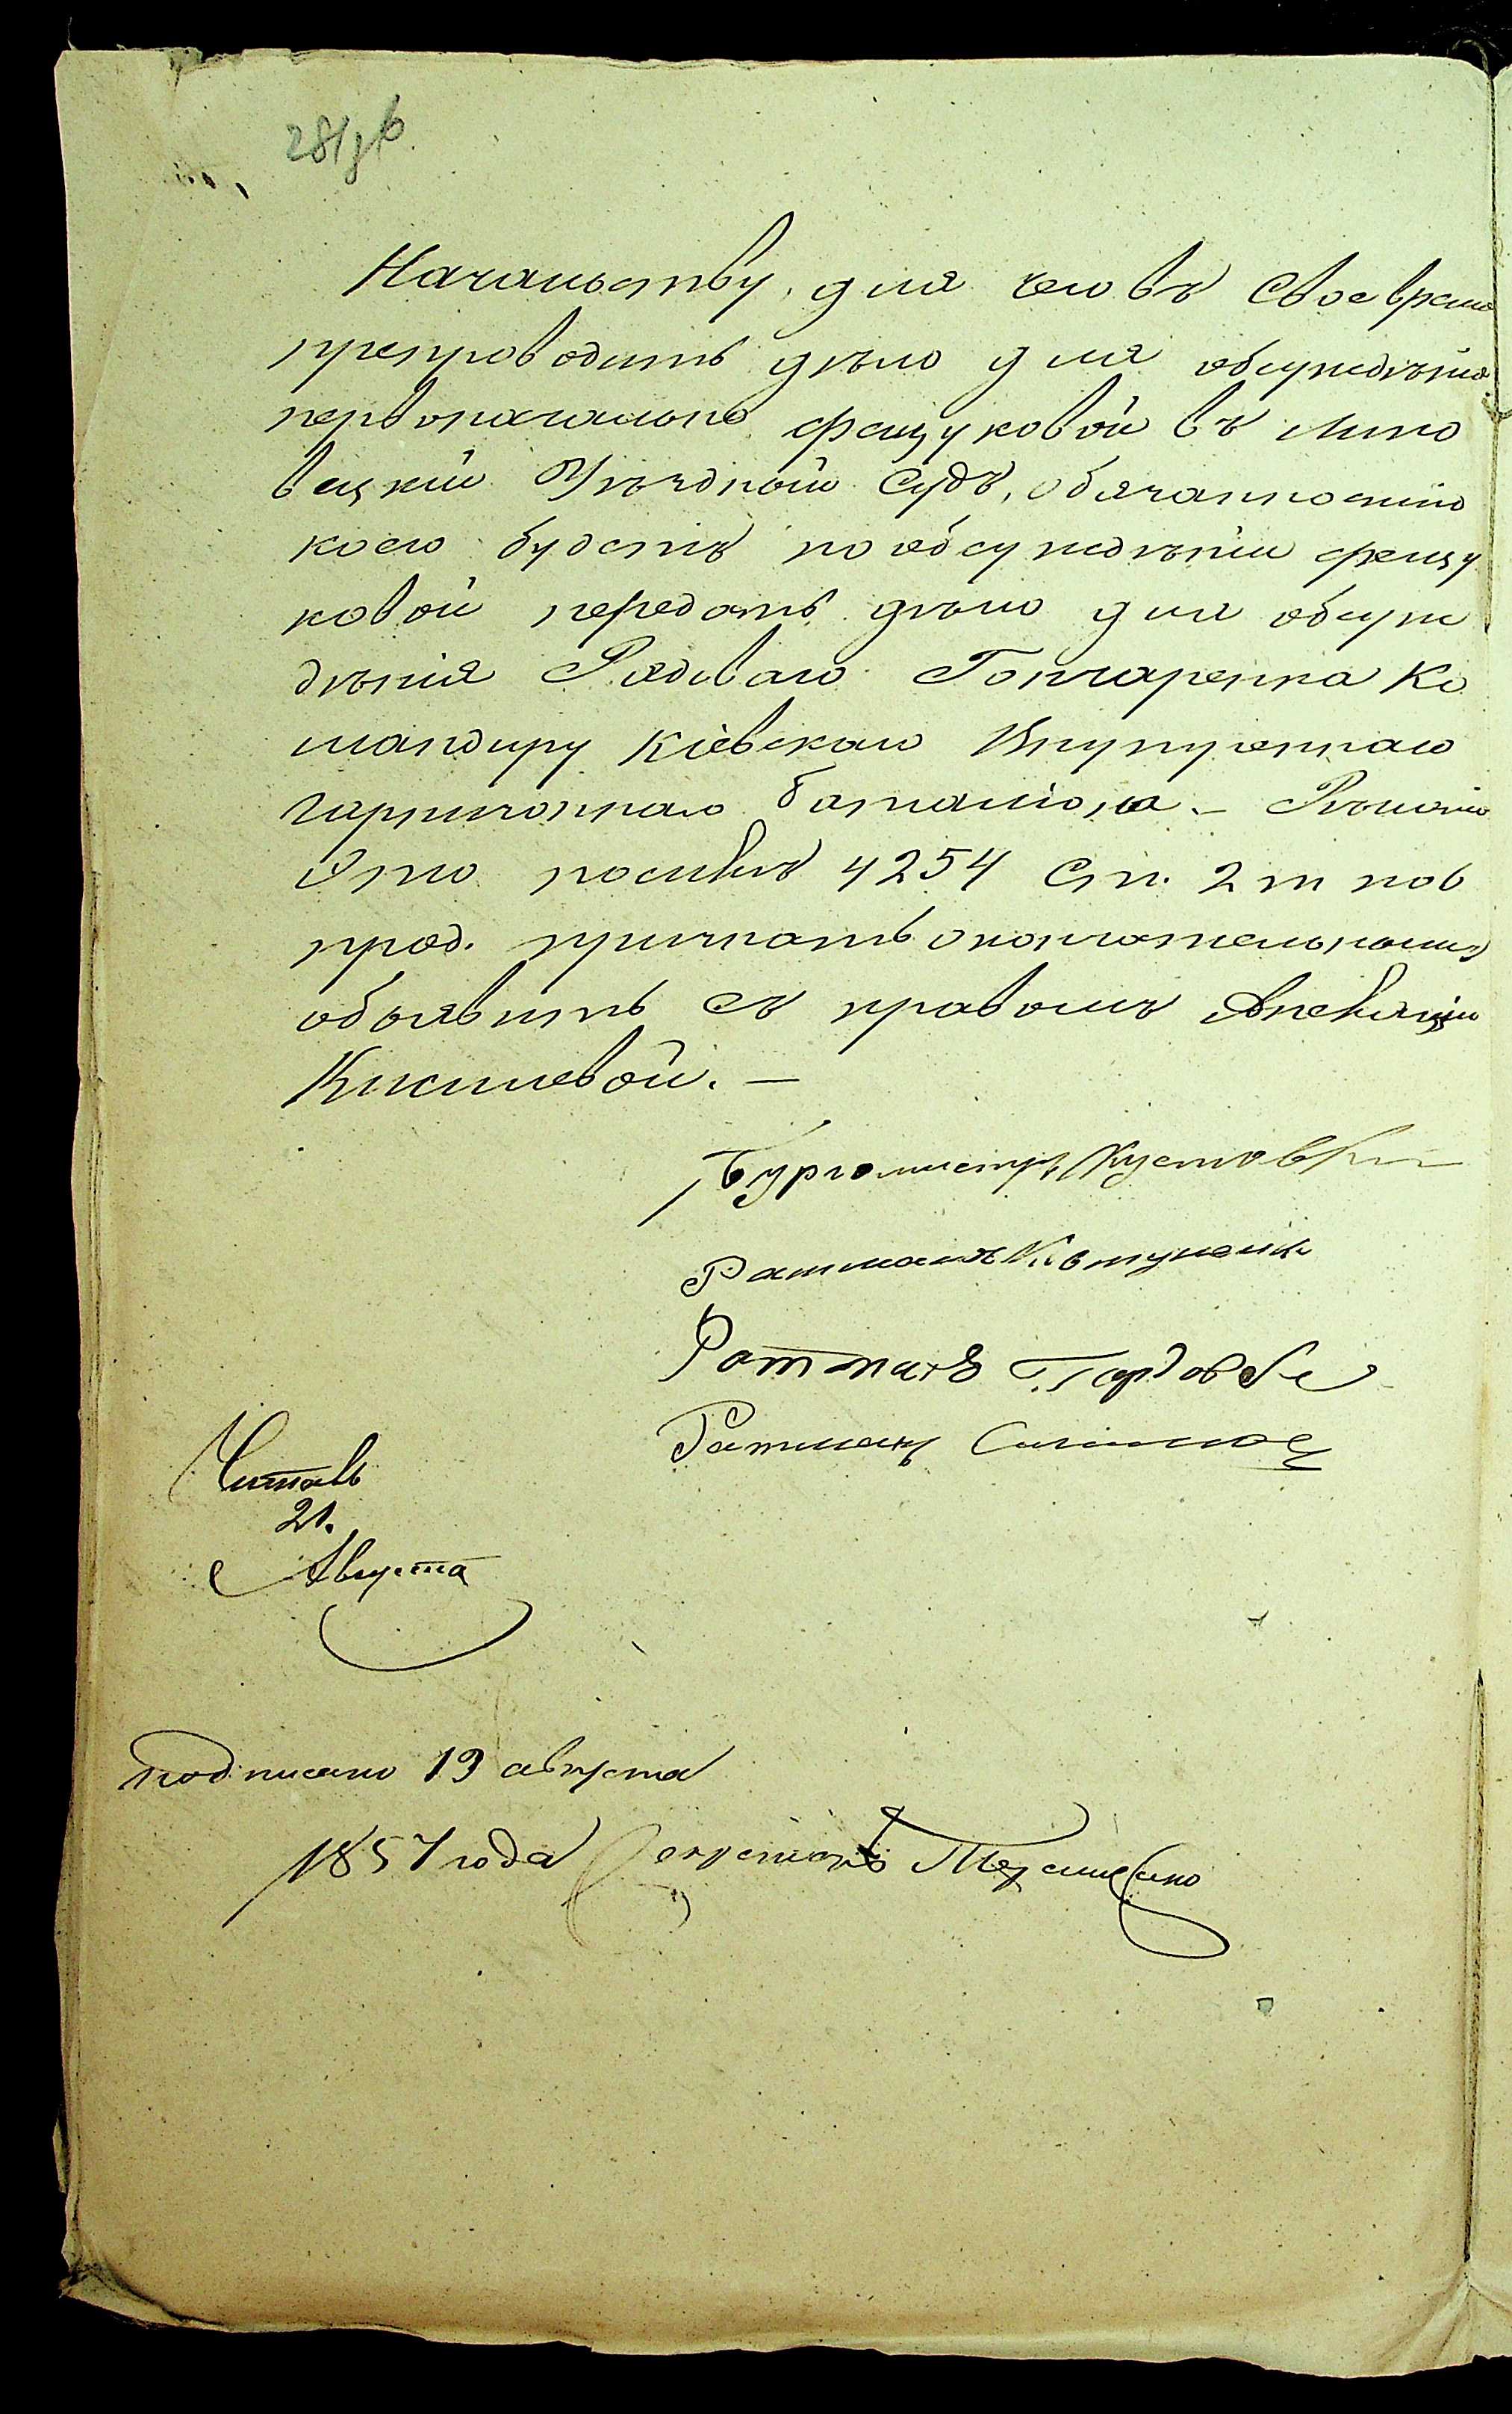 281 об
Начальству, для чего въ свое время
препроводить дѣло для обсужденія
первоначально Фещуковой въ Липо
вецкій Уѣздный Судъ, обязанностію
коего будетъ по обсужденіи Фещу
ковой передать дѣло для обсуж
денія Рядоваго Гончаренка Ко
мандиру Кіевскаго Внутренняго
гарнизоннаго баталіона. — Рѣшеніе
это по силѣ 4254 ст. 2 т
прод. признать окончательнымъ
объявить съ правомъ Апеляціи
Киселевой. —
Бургомистръ
Ратманъ
Ратманъ
Ратманъ
Читалъ
21.
Августа
подписано 19 августа
1857 года Секретарь